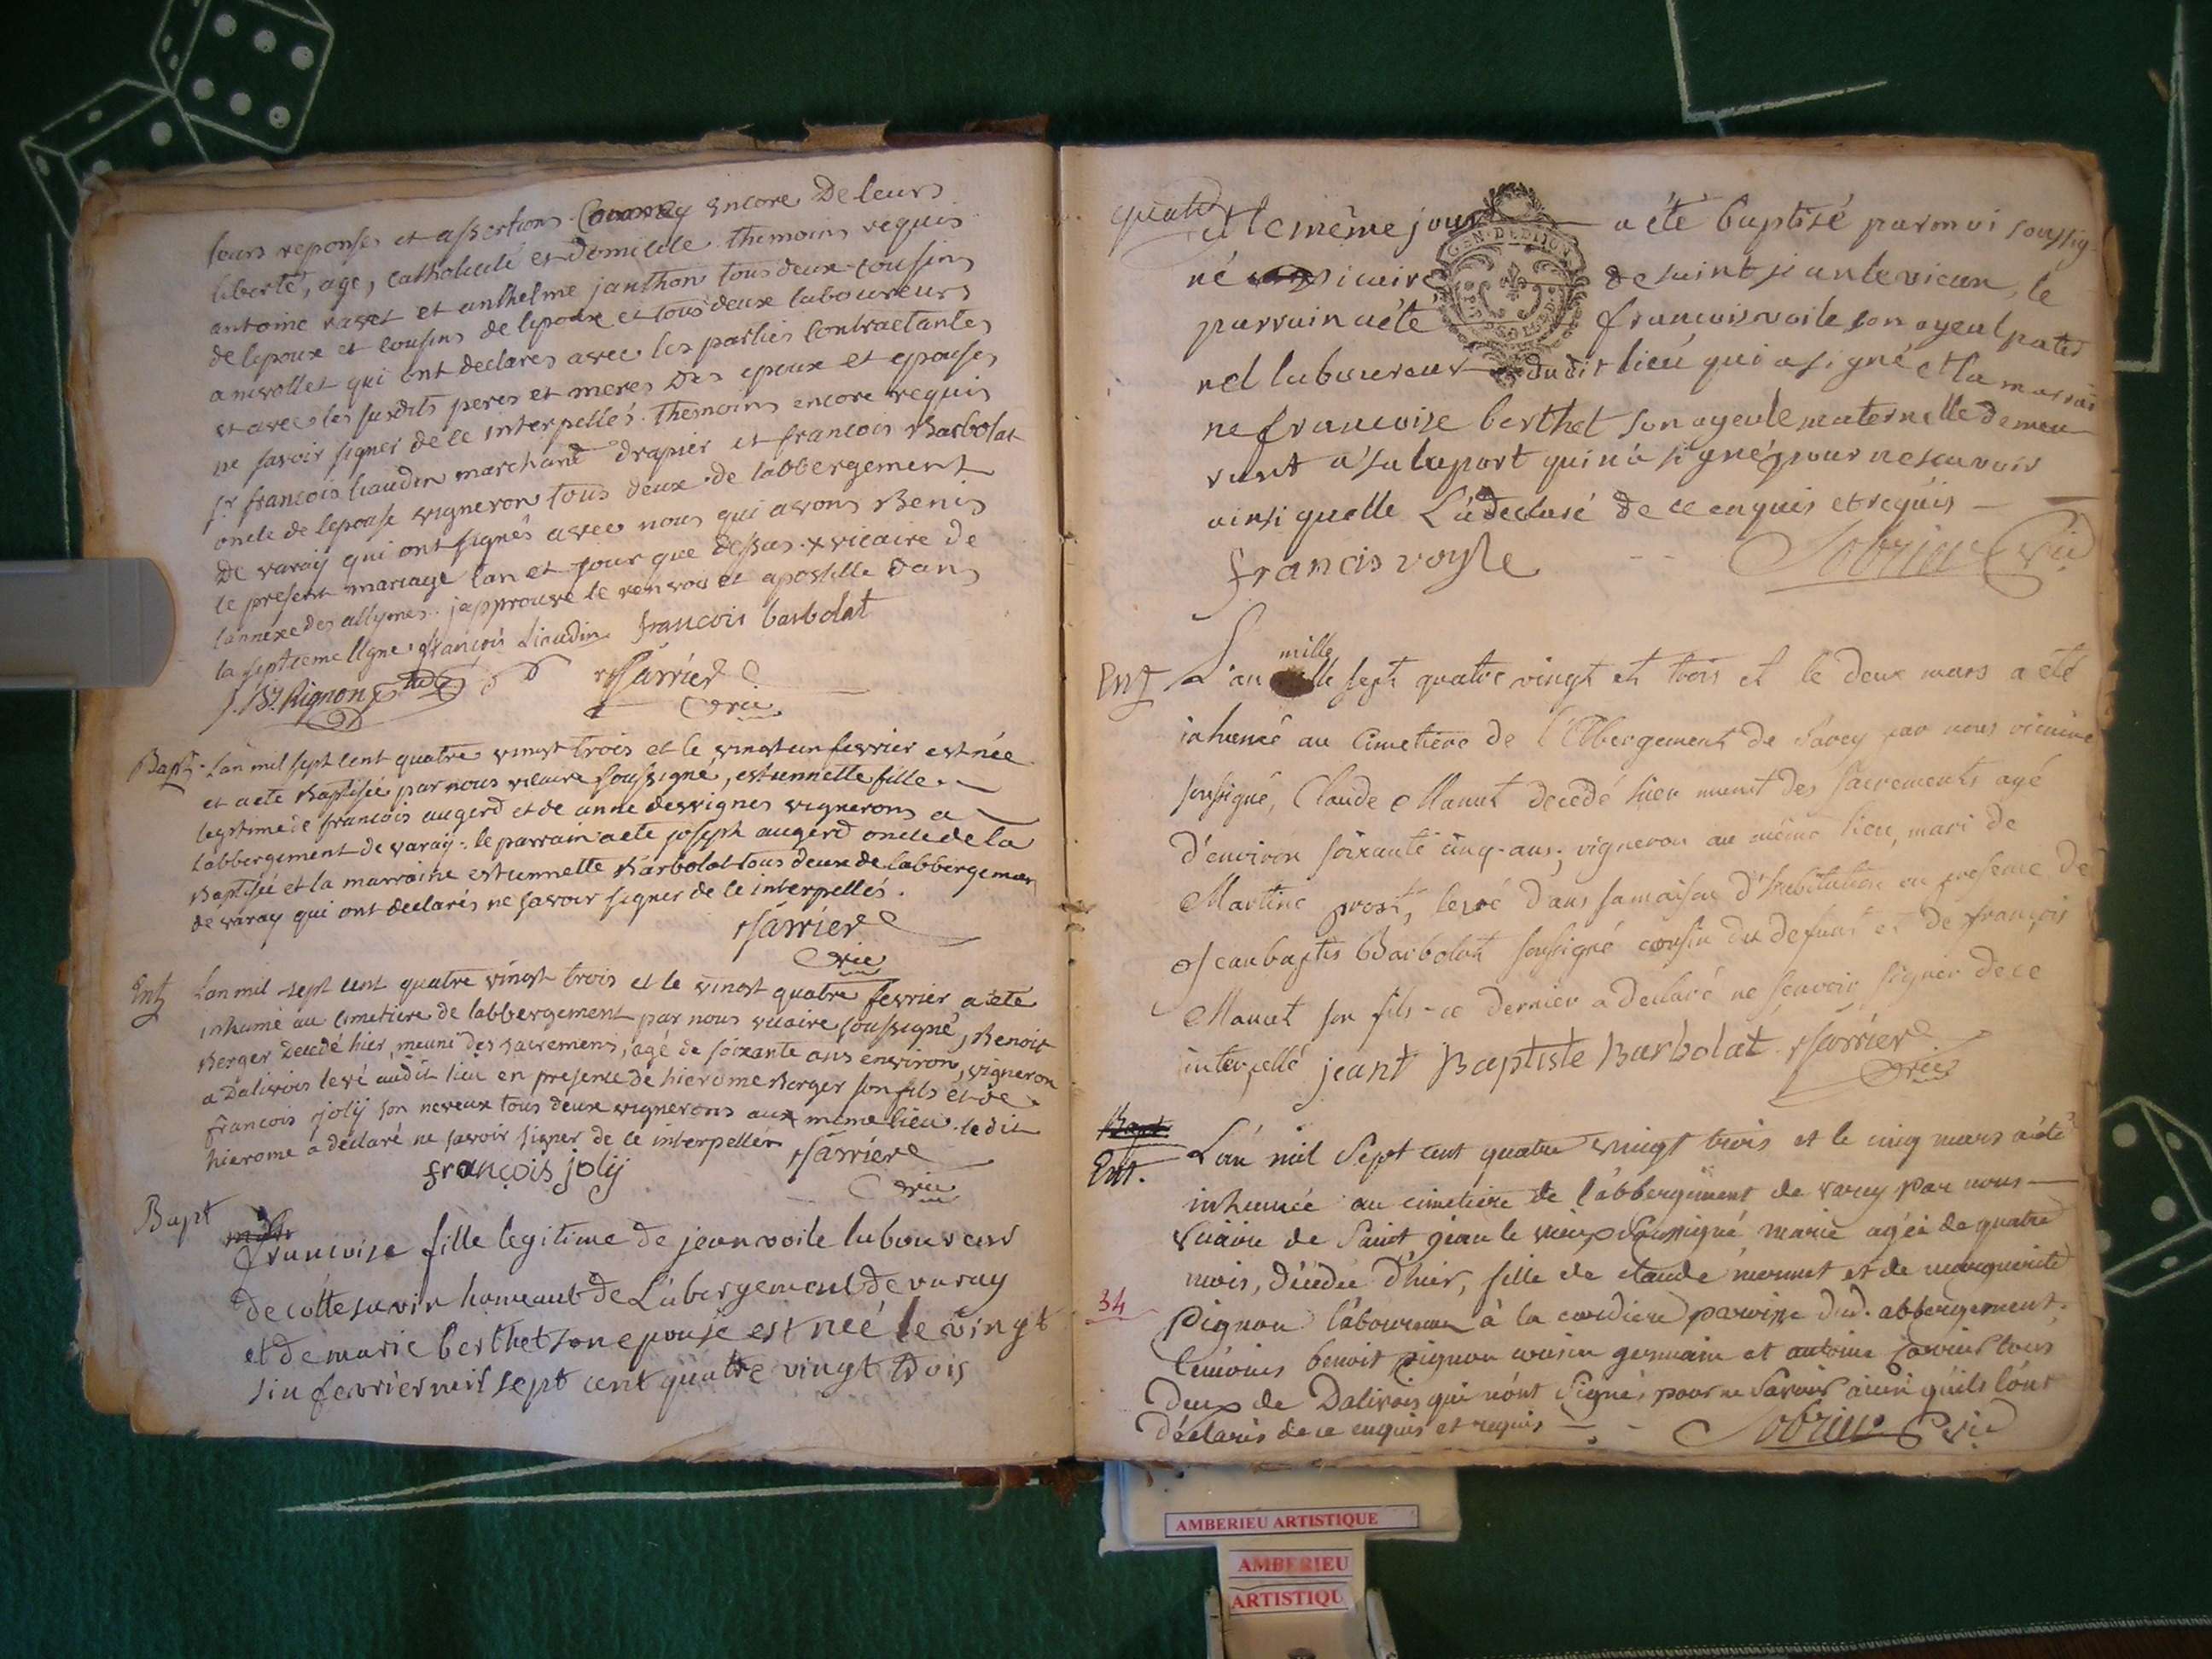 leurs reponses et assertions encore De leurs
liberté, age, catholicité et Domicile themoins requis
antoine ravet et anthelme janthon tous deux cousins
de lepoux et cousins de lepoux et tous deux laboureurs
a nivollet qui ont declarés avec les parties contractantes
et avec les susdits peres et meres Des epoux et epouses
ne savoir signer de ce interpellés. themoins encore requis
sr francois liaudin marchand drapier et francois Barbolat
oncle de lepouse vigneron tous deux de labbergement
De varaÿ qui ont signés avec nous qui avons Benis
le present mariage lan et jour que dessus. x vicaire de
lannexe des allymes. japprouve le renvoi et apostille dans
la septieme ligne. françois Liaudin francois barbolat
J. Bt. Rignon Sarriere
vic
Bapt. Lan mil sept cent quatre vingt trois et le vingt un fevrier est née
et a eté Baptisée par nous vicaire soussigné, estiennette fille
legitime de francois augerd et de anne desvignes vignerons a
labbergement de varaÿ. le parrain a eté joseph augerd oncle de la
Baptisée et la marraine estiennette Barbolat tous deux de labbergement
de varay qui ont declarés ne savoir signer de ce interpellés.
Sarriere
vic
Ent Lan mil sept cent quatre vingt trois et le vingt quatre fevrier a eté
inhumé au cimetiere de labbergement par nous vicaire soussigné, Benoit
Berger decedé hier, meuni des sacremens, agé de soixante ans environ, vigneron
a Dalivois levé audit lieu en presence de hierome Berger son fils et de
francois jolÿ son neveux tous deux vignerons aux meme lieu. ledit
hierome a déclaré ne savoir signer de ce interpellér Sarriere
françois jolÿ vic
Bapt
francoise fille legitime de jean voile laboureur
de cottesavin hameaut de Labergement de varay
et de marie berthet son epouse est neé le vingt
sin fevrier mil sept cent quatre vingt trois
quatre
GEN. DE DIJON
et le même jour a été baptisé par moi soussig
né vicaire de saint jean le vieux, le
parrain a été francois voile son ayeul pater
nel laboureur dudit lieu qui a signé et la marrai
ne francoise berthet son ayeule maternelle demeu
rant a salaport qui n'a signé pour ne scavoir
ainsi quelle L'a declaré de ce enquis et requis
francis voyle Sobrier vic
Ent L'an mille sept quatre vingt et trois et le deux mars a été
inhumé au cimetiere de l'Abergement de Varey par nous vicaire
soussigné, Claude Manut decedé hier munit des sacrements agé
d'environ soixante cinq ans, vigneron au même lieu, mari de
Martine prost, levé dans sa maison d'habitation en presence de
Jean baptis Barbolat soussigné cousin du defunt et de françois
Manut son fils ce dernier a declaré ne scavoir signer de ce
interpellé jeant Baptiste Barbolat Sarriere
vic
Bapt
Ent. L'an mil sept cent quatre vingt trois et le cinq mars a été
inhumée au cimetiere de l'abbergement de varey par nous
vicaire de Saint jean le vieux soussigné marie agée de quatre
mois, décédée d'hier, fille de claude monnet et de marguerite
34 pignon laboureur à la cordiere paroisse dud. abbergement.
temoins benoit pignon cousin germain et antoine tous
deux de Dalivois qui n'ont signé, pour ne savoir ainsi qu'ils l'ont
déclarés de ce enquis et requis Sobrier vic
AMBERIEU ARTISTIQUE
AMBERIEU
ARTISTIQU